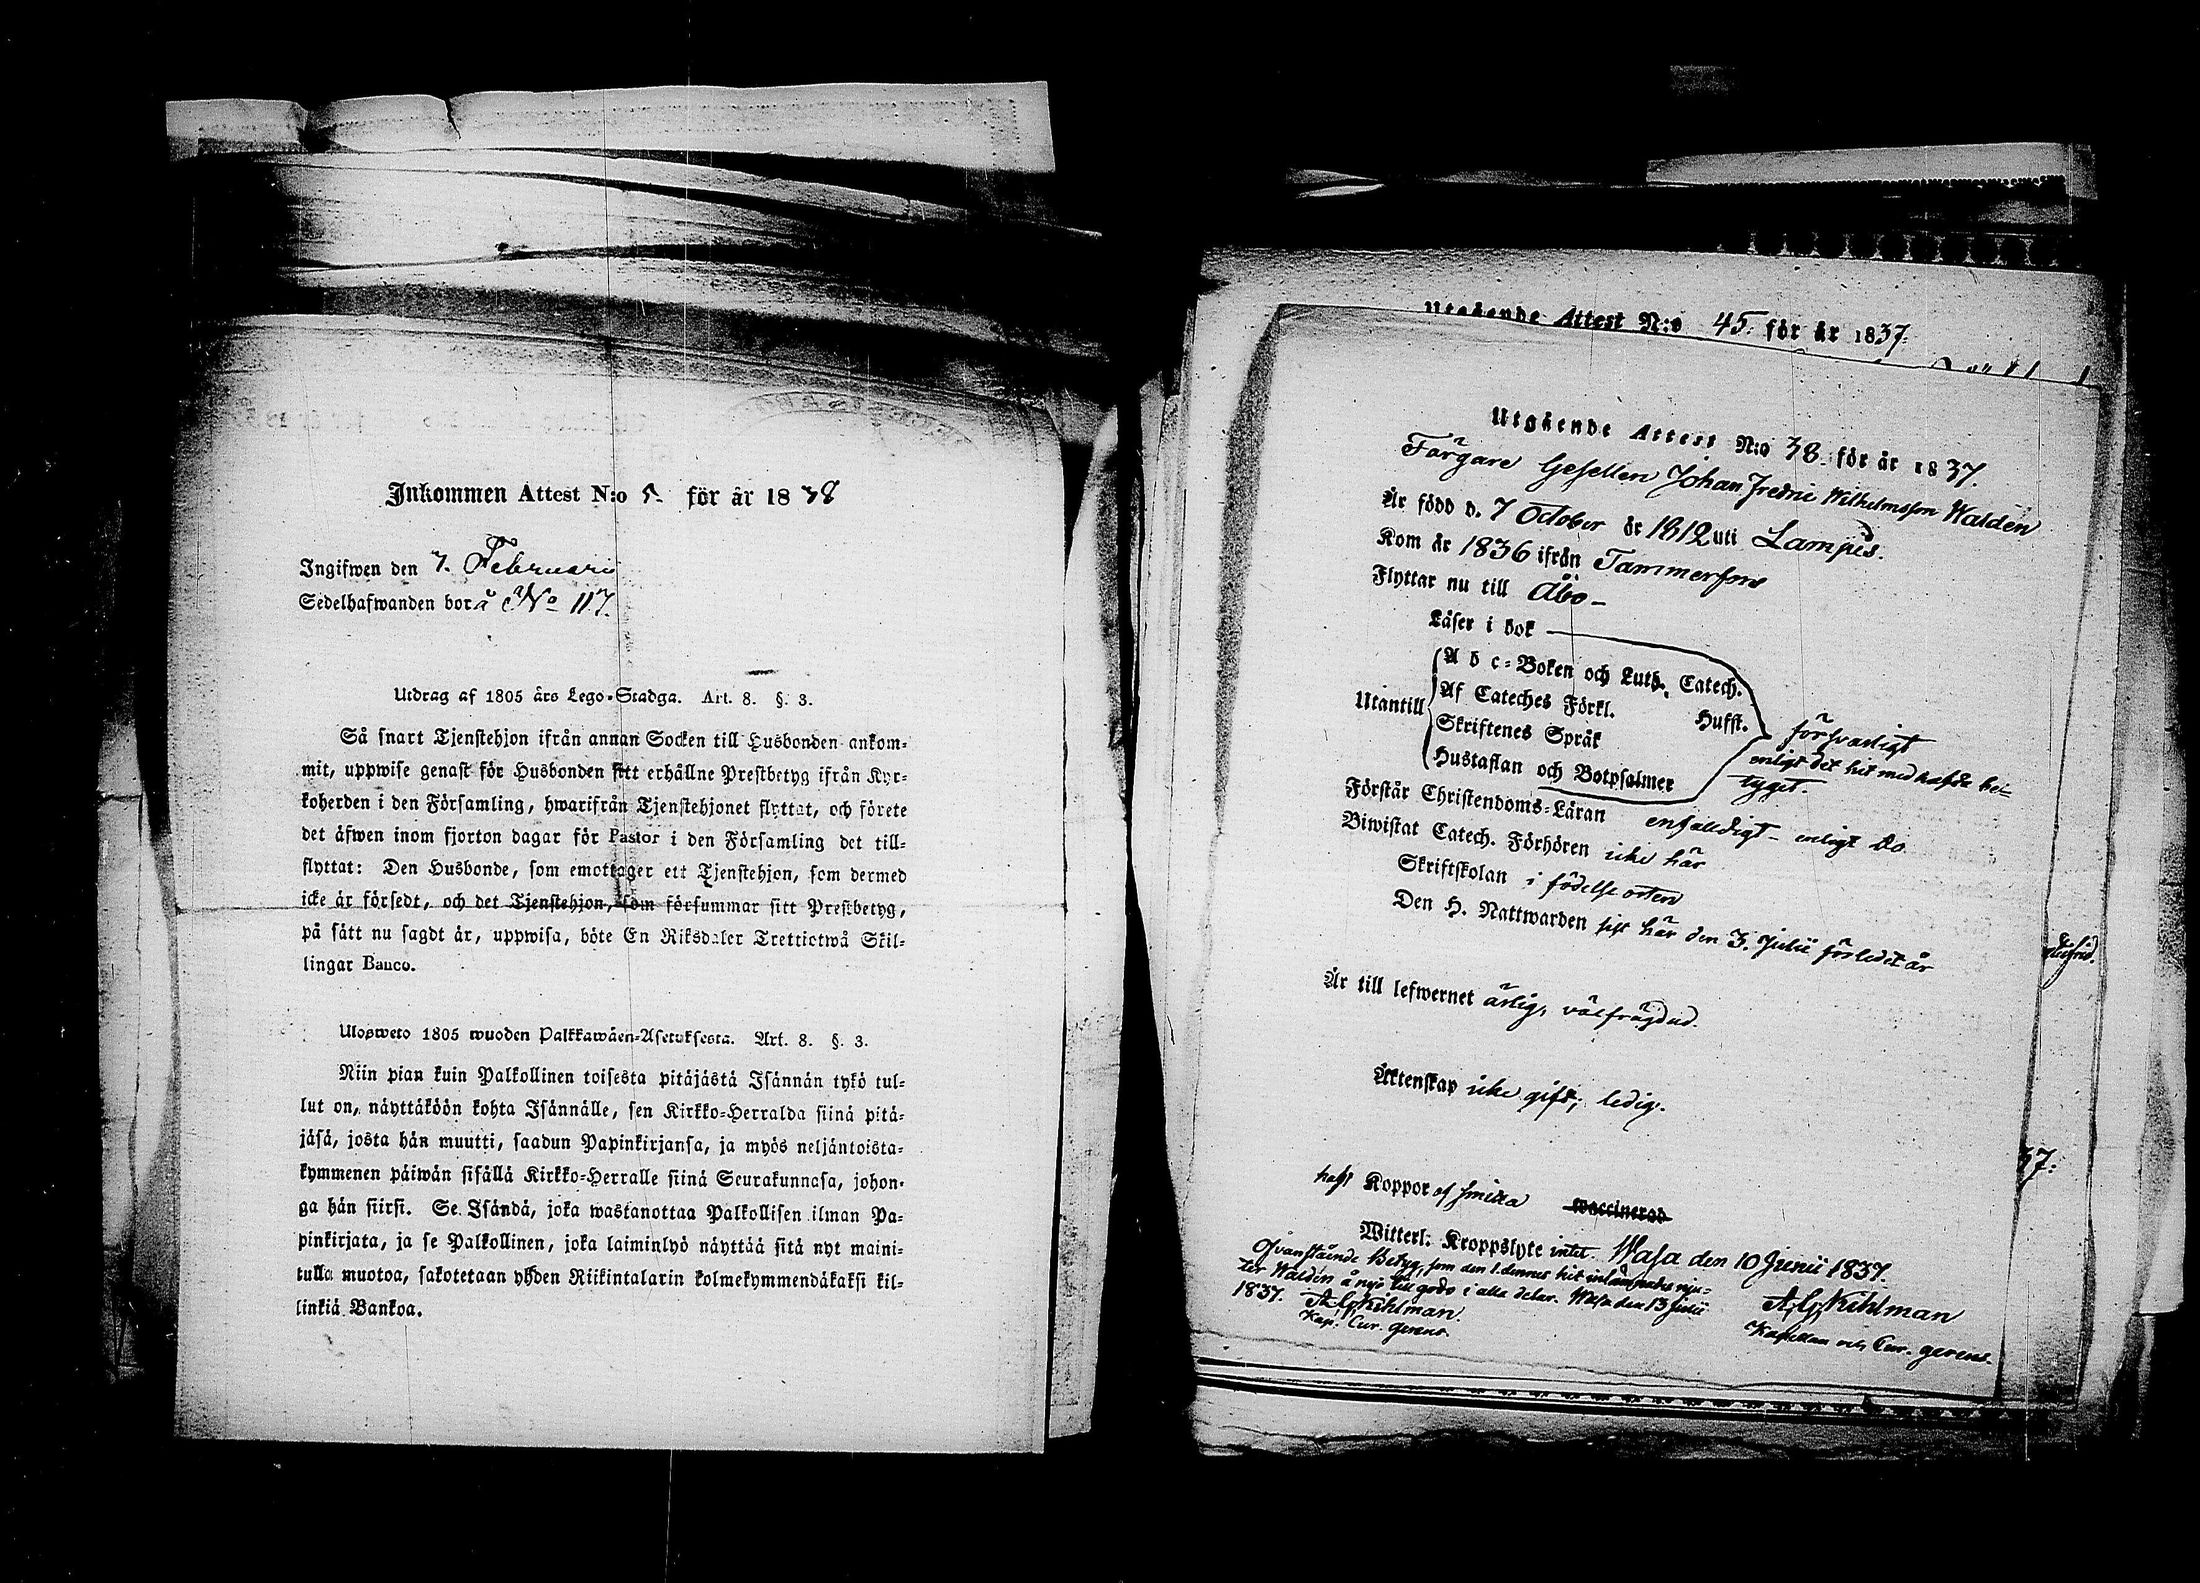 Inkommen Attest N:o 5. för år 1838
Ingifwen den 7. Februari
Sedelhafwanden bor å No 117.
Utdrag af 1805 års Lego-Stadga. Art. 8. §. 3.
Så snart Tjenstehjon ifrån annan Socken till Husbonden ankom-
mit, uppwise genast för Husbonden sitt erhållne Prestbetyg ifrån Kyr-
koherden i den Församling, hwarifrån Tjenstehjonet flyttat, och förete
det äfwen inom fjorton dagar för Pastor i den Församling det till-
flyttat: Den Husbonde, som emottager ett Tjenstehjon, som dermed
icke är försedt, och det Tjenstehjon, som försummar sitt Prestbetyg,
på sätt nu sagdt är, uppwisa, böte En Riksdaler Trettiotwå Skil-
lingar Banco.
Ulosweto 1805 wuoden Palkkawäen-Asetuksesta. Art. 8. §. 3.
Niin pian kuin Palkollinen toisesta pitäjästä Isännän tykö tul-
lut on, näyttäköön kohta Isännälle, sen Kirkko-Herralda siinä pitä-
jäsä, josta hän muutti, saadun Papinkirjansa, ja myös neljäntoista-
kymmenen päiwän sisällä Kirkko-Herralle siinä Seurakunnasa, johon-
ga hän siirsi. Se Isändä, joka wastanottaa Palkollisen ilman Pa-
pinkirjata, ja se Palkollinen, joka laiminlyö näyttää sitä nyt maini-
tulla muotoa, sakotetaan yhden Riikintalarin kolmekymmendäkaksi kil-
linkiä Bankoa.
Utgående Attest N:o 45. för år 1837.
Utgående Attest N:o 38. för år 1837.
Färgare Gesellen Johan Fredric Wilhelmsson Waldén
Är född d. 7 October år 1812 uti Lampis.
Kom år 1836 ifrån Tammerfors
Flyttar nu till Åbo –
Läser i bok
A b c-Boken och Luth. Catech.
Utantill Af Cateches Förkl. Hufst.
Skriftenes Språk
Hustaflan och Botpsalmer
försvarligt
enligt det hit medhafda be-
tyget.
Förstår Christendoms-Läran enfaldigt – enligt do
Biwistat Catech. Förhören icke här
Skriftskolan i födelse orten
Den H. Nattwarden sist här den 3. Julii förledet år
Är till lefwernet ärlig, välfrägdad.
Äktenskap icke gift; ledig.
haft Koppor af smitta waccinerad
Witterl. Kroppslyte intet. Wasa den 10 Junii 1837.
A. G. Kihlman
Kapellan och Cur. gerens.
Ofvanstående Betyg, som den 1. dennes hit inlämnades nju-
ter Waldén å nyo till godo i alla delar. Wasa den 13 Julii
1837. A. G. Kihlman.
Kap. Cur. gerens.
37: